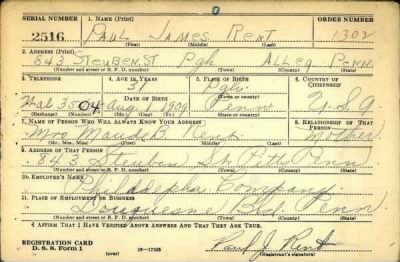 SERIAL NUMBER 1. NAME (Print) ORDER NUMBER
2516 PAUL JAMES RENT 1302
(First) (Middle) (Last)
2. ADDRESS (Print)
843 STEUBEN ST Pgh ALLEG PENN.
(Number and street or R. F. D. number) (Town) (County) (State)
3. TELEPHONE 4. AGE IN YEARS 5. PLACE OF BIRTH 6. COUNTRY OF CITIZENSHIP
31 Pgh.
Wal 3504 DATE OF BIRTH (Town or county)
Aug 1 1909 Penn U.S.A.
(Exchange) (Number) (Mo.) (Day) (Yr.) (State or country)
7. NAME OF PERSON WHO WILL ALWAYS KNOW YOUR ADDRESS 8. RELATIONSHIP OF THAT PERSON
Mrs Maude B. Rent Mother
(Mr., Mrs., Miss) (First) (Middle) (Last)
9. ADDRESS OF THAT PERSON
843 Steuben St. Pitts Penn
(Number and street or R. F. D. number) (Town) (County) (State)
10. EMPLOYER'S NAME
Philadelpha Company
11. PLACE OF EMPLOYMENT OR BUSINESS
Duquesne Penn
(Number and street or R. F. D. number) (Town) (County) (State)
I AFFIRM THAT I HAVE VERIFIED ABOVE ANSWERS AND THAT THEY ARE TRUE.
REGISTRATION CARD
D. S. S. Form 1 (over) 16—17105 Paul J. Rent
(Registrant's signature)